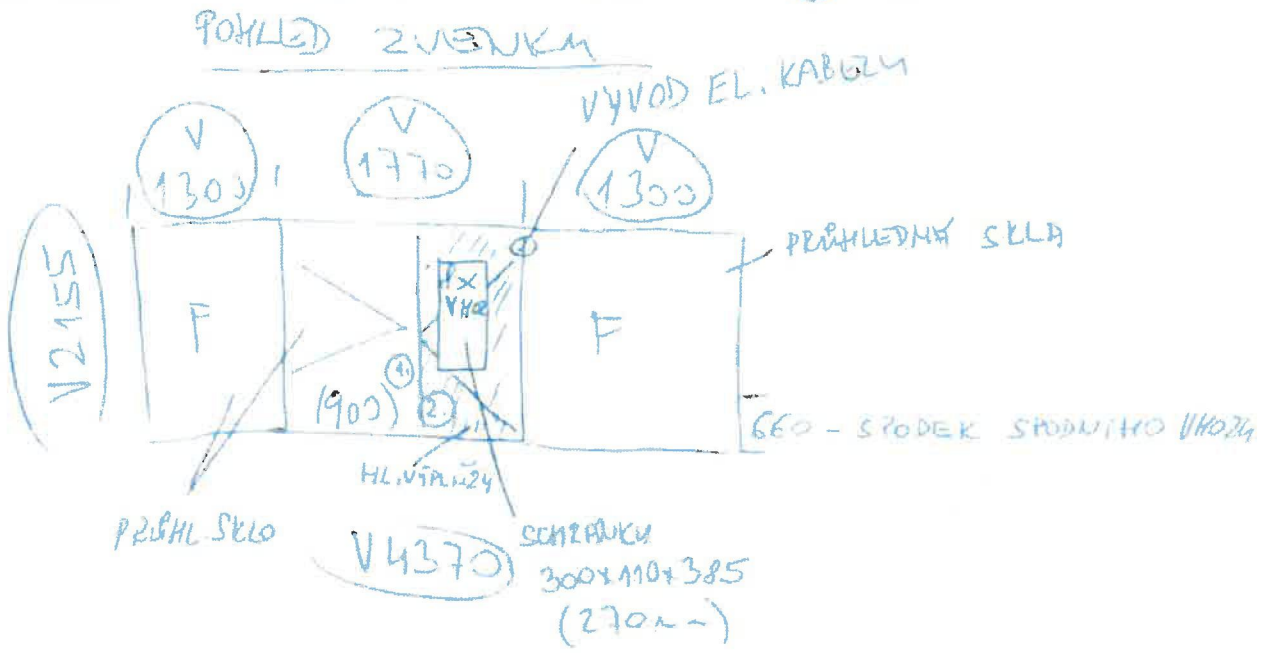 POHLED ZVENKU
VÝVOD EL. KABELU
V
1300
V
1770
V
1300
V2155
PRŮHLEDNÁ SKLA
F
X
VHOZ
F
(900)
1.
2.
660 - SPODEK SPODNÍHO VHOZU
HL. VÝPLNĚ
PRŮHL. SKLO
V4370
SCHRÁNKY
300x110x385
(270mm)